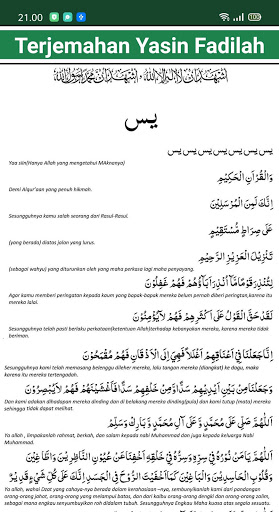 21.00
Terjemahan Yasin Fadilah
اَشْهَدُ اَنْ لَا اِلٰهَ اِلَّا اللهُ ، وَاَشْهَدُ اَنَّ مُحَمَّدًا رَسُوْلُ اللهِ
يس
يس يس يس يس يس يس يس
Yaa siin(Hanya Allah yang mengetahui MAknanya)
وَالْقُرْآنِ الْحَكِيْمِ
Demi Alqur'aan yang penuh hikmah.
اِنَّكَ لَمِنَ الْمُرْسَلِيْنَ
Sesungguhnya kamu salah seorang dari Rasul-Rasul.
عَلٰى صِرَاطٍ مُسْتَقِيْمٍ
(yang berada) diatas jalan yang lurus.
تَنْزِيْلَ الْعَزِيْزِ الرَّحِيْمِ
(sebagai wahyu) yang diturunkan oleh yang maha perkasa lagi maha penyayang.
لِتُنْذِرَ قَوْمًا مَّآ اُنْذِرَ اٰبَآؤُهُمْ فَهُمْ غٰفِلُوْنَ
Agar kamu memberi peringatan kepada kaum yang bapak-bapak mereka belum pernah diberi peringatan,karena itu
mereka lalai.
لَقَدْ حَقَّ الْقَوْلُ عَلٰى اَكْثَرِهِمْ فَهُمْ لَايُؤْمِنُوْنَ
Sesungguhnya telah pasti berlaku perkataan(ketentuan Allah)terhadap kebanyakan mereka, karena mereka tidak
beriman.
اِنَّاجَعَلْنَا فِيْ اَعْنَاقِهِمْ اَغْلَالًا فَهِيَ اِلَى الْاَذْقَانِ فَهُمْ مُقْمَحُوْنَ
Sesungguhnya kami telah memasang belenggu dileher mereka, lalu tangan mereka (diangkat) ke dagu, maka
karena itu mereka tertengadah.
وَجَعَلْنَا مِنْ بَيْنِ اَيْدِيْهِمْ سَدًّا وَّمِنْ خَلْفِهِمْ سَدًّا فَاَغْشَيْنٰهُمْ فَهُمْ لَايُبْصِرُوْنَ
Dan kami adakan dihadapan mereka dinding dan di belakang mereka dinding(pula) dan kami tutup (mata) mereka
sehingga tidak dapat melihat.
اَللّٰهُمَّ صَلِّ عَلٰى مُحَمَّدٍ وَّ عَلٰى اٰلِ مُحَمَّدٍ وَّ بَارِكْ وَسَلِّمْ
Ya allah , limpakanlah rahmat, berkah, dan salam kepada nabi Muhammad dan juga kepada keluarga Nabi
Muhammad.
اَللّٰهُمَّ يَامَنْ نُوْرُهُ فِيْ سِرِّهِ وَسِرُّهُ فِيْ خَلْقِهِ اَخْفِنَا عَنْ عُيُوْنِ النَّاظِرِيْنَ وَالْبَاغِيْنَ
وَقُلُوْبِ الْحَاسِدِيْنَ وَالْبَاغِيْنَ كَمَا اَخْفَيْتَ الرُّوْحَ فِي الْجَسَدِ اِنَّكَ عَلٰى كُلِّ شَيْءٍ قَدِيْرٌ
Ya allah, wahai Daat yang cahaya-nya berada dalam kerahasiaan –nya, sembunyikanlah kami dari pandangan
orang-orang jahat, orang-orang yang melampui batas, dan dari kalbu orang-orang dengki dan orang-orang zalim,
sebagai mana engkau senyumbuyikan roh didalam tubuh. Sesungguhnya Engkau Maha kuasa atas segala sesuatu.